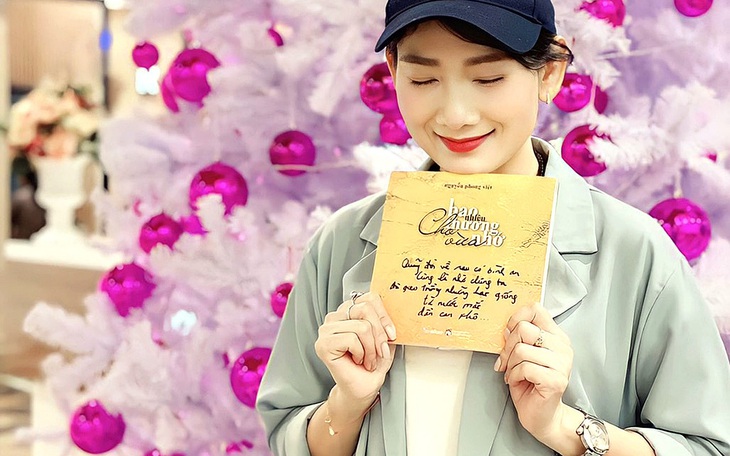 nguyễn phong việt
bao nhiêu
Cho thương
vừa nhớ
Quãng đời về sau có bình an
cũng là nhờ chúng ta
đã gieo trồng những hạt giống
từ nước mắt
đến cạn khô...